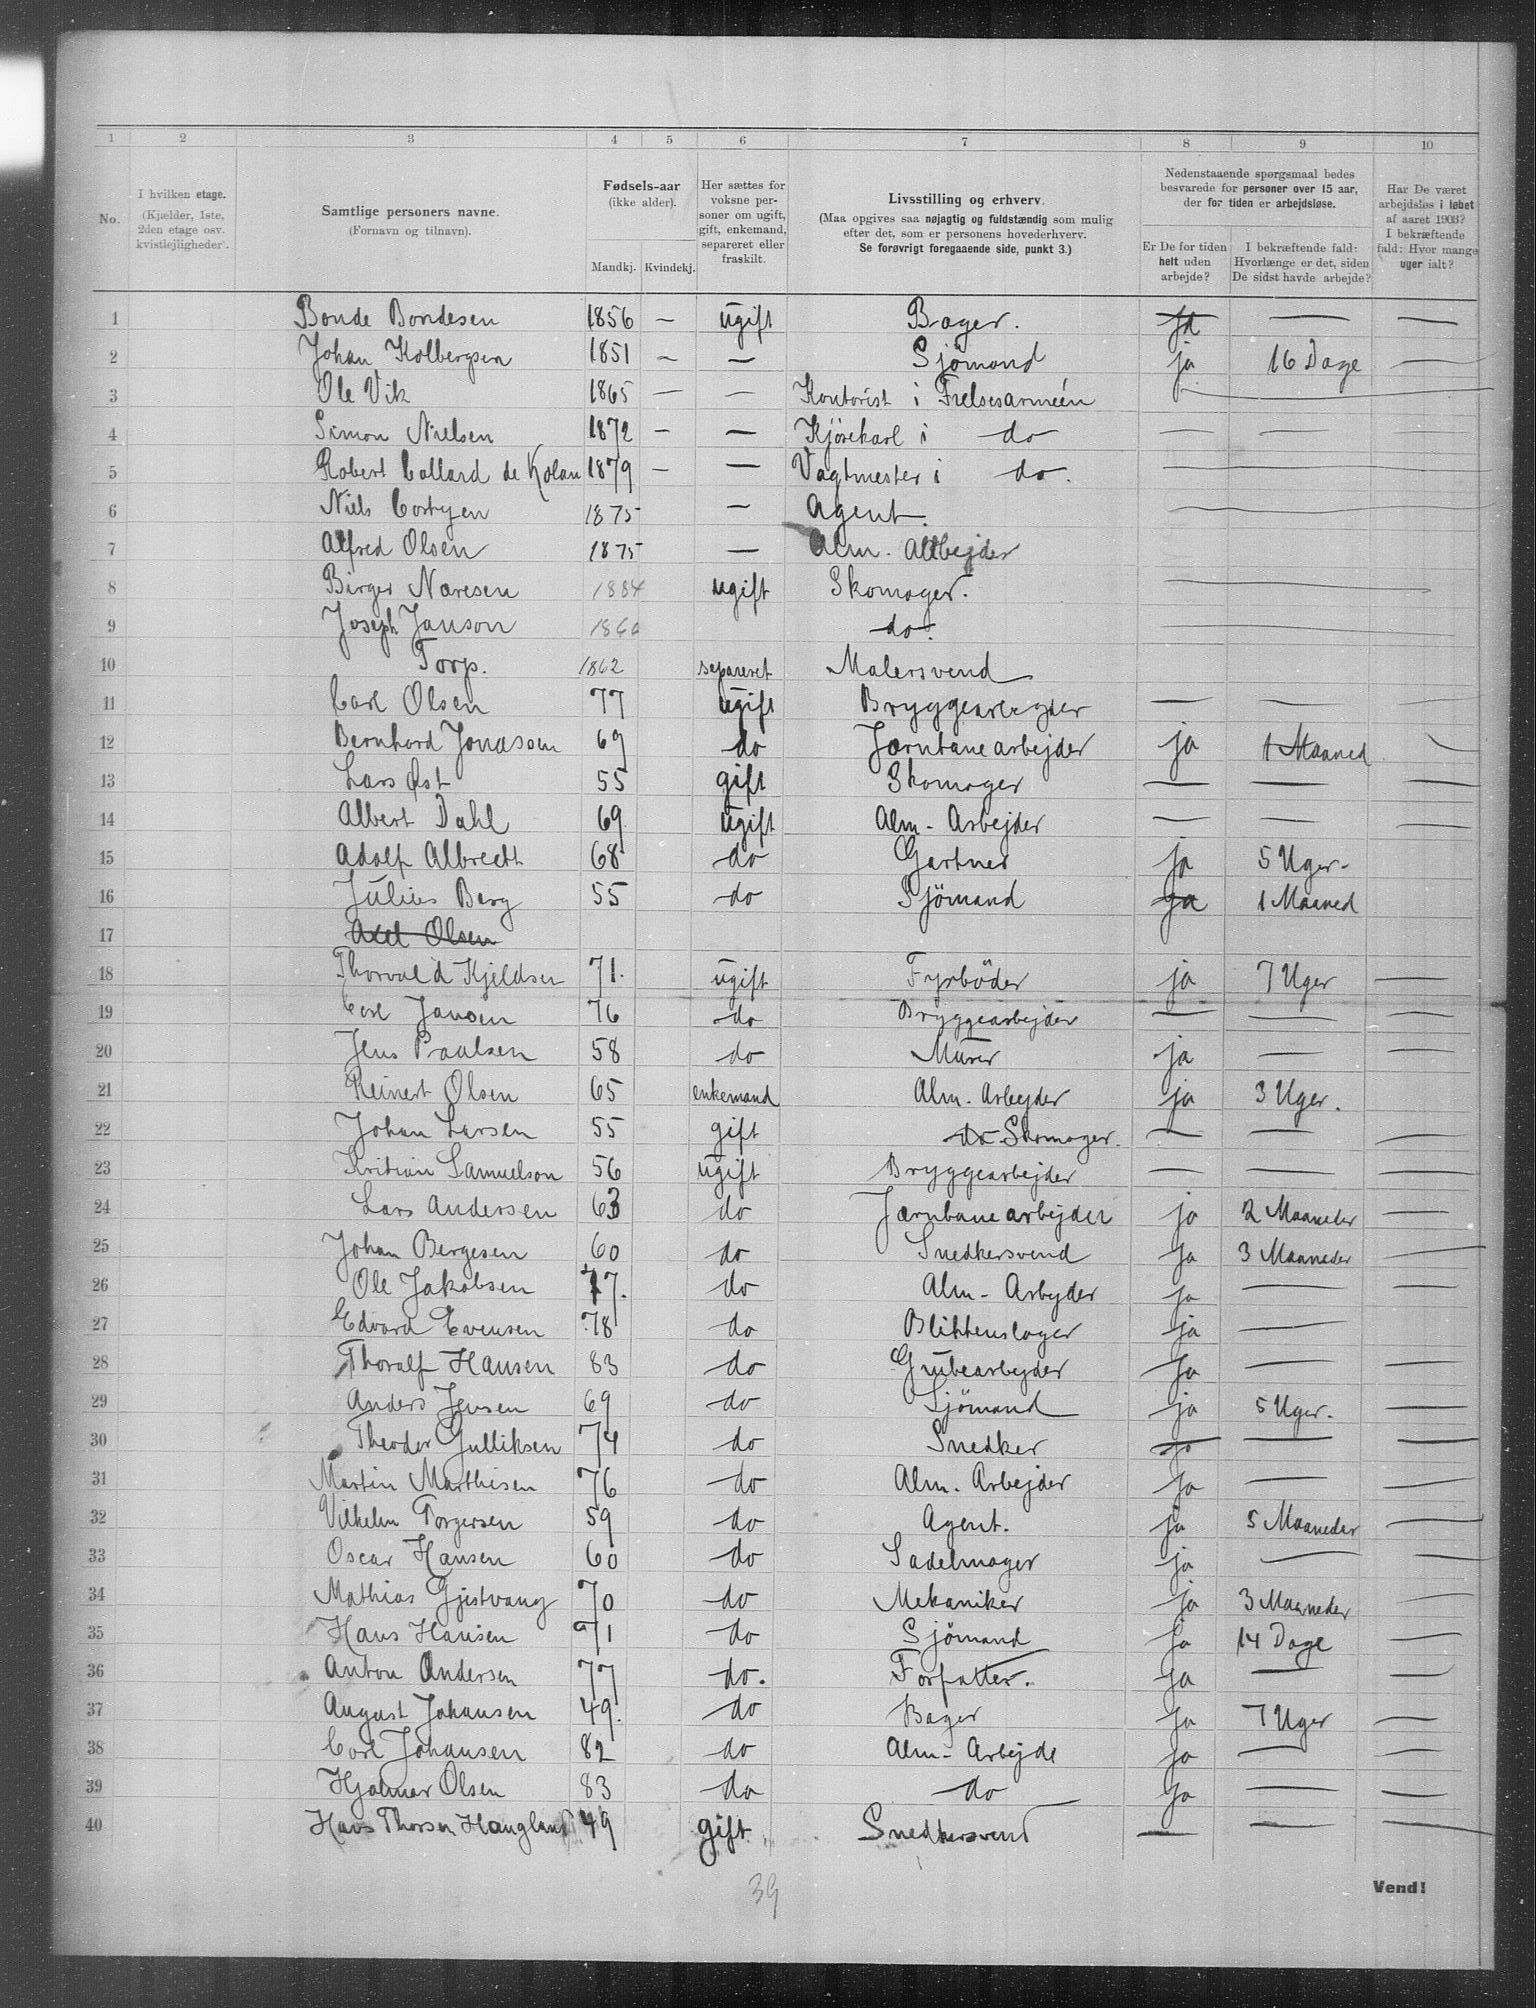 1 2 3 4 5 6 7 8 9 10
No.
I hvilken etage.
(Kjælder, 1ste,
2den etage osv.
kvistlejligheder).
Samtlige personers navne.
(Fornavn og tilnavn).
Fødsels-aar
(ikke alder).
Mandkj. Kvindekj.
Her sættes for
voksne per-
soner om ugift,
gift, enkemand,
separeret eller
fraskilt.
Livsstilling og erhverv.
(Maa opgives saa nøjagtig og fuldstændig som mulig
efter det, som er personens hovederhverv.
Se forøvrigt foregaaende side, punkt 3.)
Nedenstaaende spørgsmaal bedes
besvarede for personer over 15 aar,
der for tiden er arbejdsløse.
Er De for tiden
helt uden
arbejde?
I bekræftende fald:
Hvorlænge er det, siden
De sidst havde arbejde?
Har De været
arbejdsløs i løbet
af aaret 1903?
I bekræftende
fald: Hvor mange
uger ialt?
1 Bonde Bondesen 1856 — ugift Bager. ja — —
2 Johan Kolbergsen 1851 — — Sjömand ja 16 Dage —
3 Ole Vik 1865 — — Kontorist i Frelsesarméen —
4 Simon Nielsen 1872 — — Kjörekarl i do — — —
5 Robert Collard de Kolan 1879 — — Vagtmester i do. —
6 Niels 1875 — Agent. —
7 Alfred Olsen 1875 — Alm. Arbejder
8 Birger Naresen 1884 ugift Skomager. —
9 Joseph Janson do. —
10 Torp. 1862 separeret Malersvend
11 Carl Olsen 77 ugift Bryggearbejder — — —
12 Bernhard Jonassen 69 do Jærnbanearbejder ja 1 Maaned —
13 Lars Øst 55 gift Skomager — — —
14 Albert Dahl 69 ugift Alm. Arbejder — — —
15 Adolf Albrecht 68 do Gartner ja 5 Uger.
16 Julius Berg 55 do Sjömand ja 1 Maaned
17 Axel Olsen
18 Thorvald Kjeldsen 71. ugift Fyrböder ja 7 Uger —
19 Carl Jansen 76 do Bryggearbejder — — —
20 Jens Paulsen 58 do Murer ja — —
21 Reinert Olsen 65 enkemand Alm. Arbejder ja 3 Uger.
22 Johan Larsen 55 gift do Skomager. — — —
23 Kristian Samuelson 56 ugift Bryggearbejder — — —
24 Lars Andersen 63 do Jærnbanearbejder ja 2 Maaneder —
25 Johan Bergesen 60 do Snedkersvend ja 3 Maaneder —
26 Ole Jakobsen 77. do Alm. Arbejder ja — —
27 Edvard Evensen 78 do Blikkenslager ja —
28 Thoralf Hansen 83 do Grubearbejder ja — —
29 Anders Jensen 69 do Sjömand ja 5 Uger. —
30 Theodor Gulliksen 74 do Snedker ja — —
31 Martin Marthisen 76 do Alm. Arbejder ja — —
32 Vilhelm Torgersen 59 do Agent. ja 5 Maaneder —
33 Oscar Hansen 60 do Sadelmager ja — —
34 Mathias Gjistvang 70 do Mekaniker ja 3 Maaneder —
35 Hans Hansen 71 do Sjömand ja 14 Dage —
36 Anton Andersen 77 do. Forfatter. ja — —
37 August Johansen 49. do Bager ja 7 Uger —
38 Carl Johansen 82 do Alm. Arbejde ja — —
39 Hjalmar Olsen 83 do do ja — —
40 Hans Thorsen Haugland 49 gift Snedkersvend — — —
39
Vend!